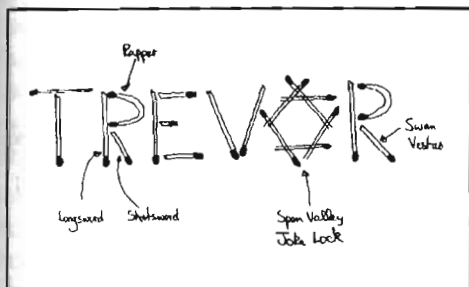 Rapper
TREVOR
Swan
Vestas
Longsword
Shortsword
Spen Valley
Joke Lock